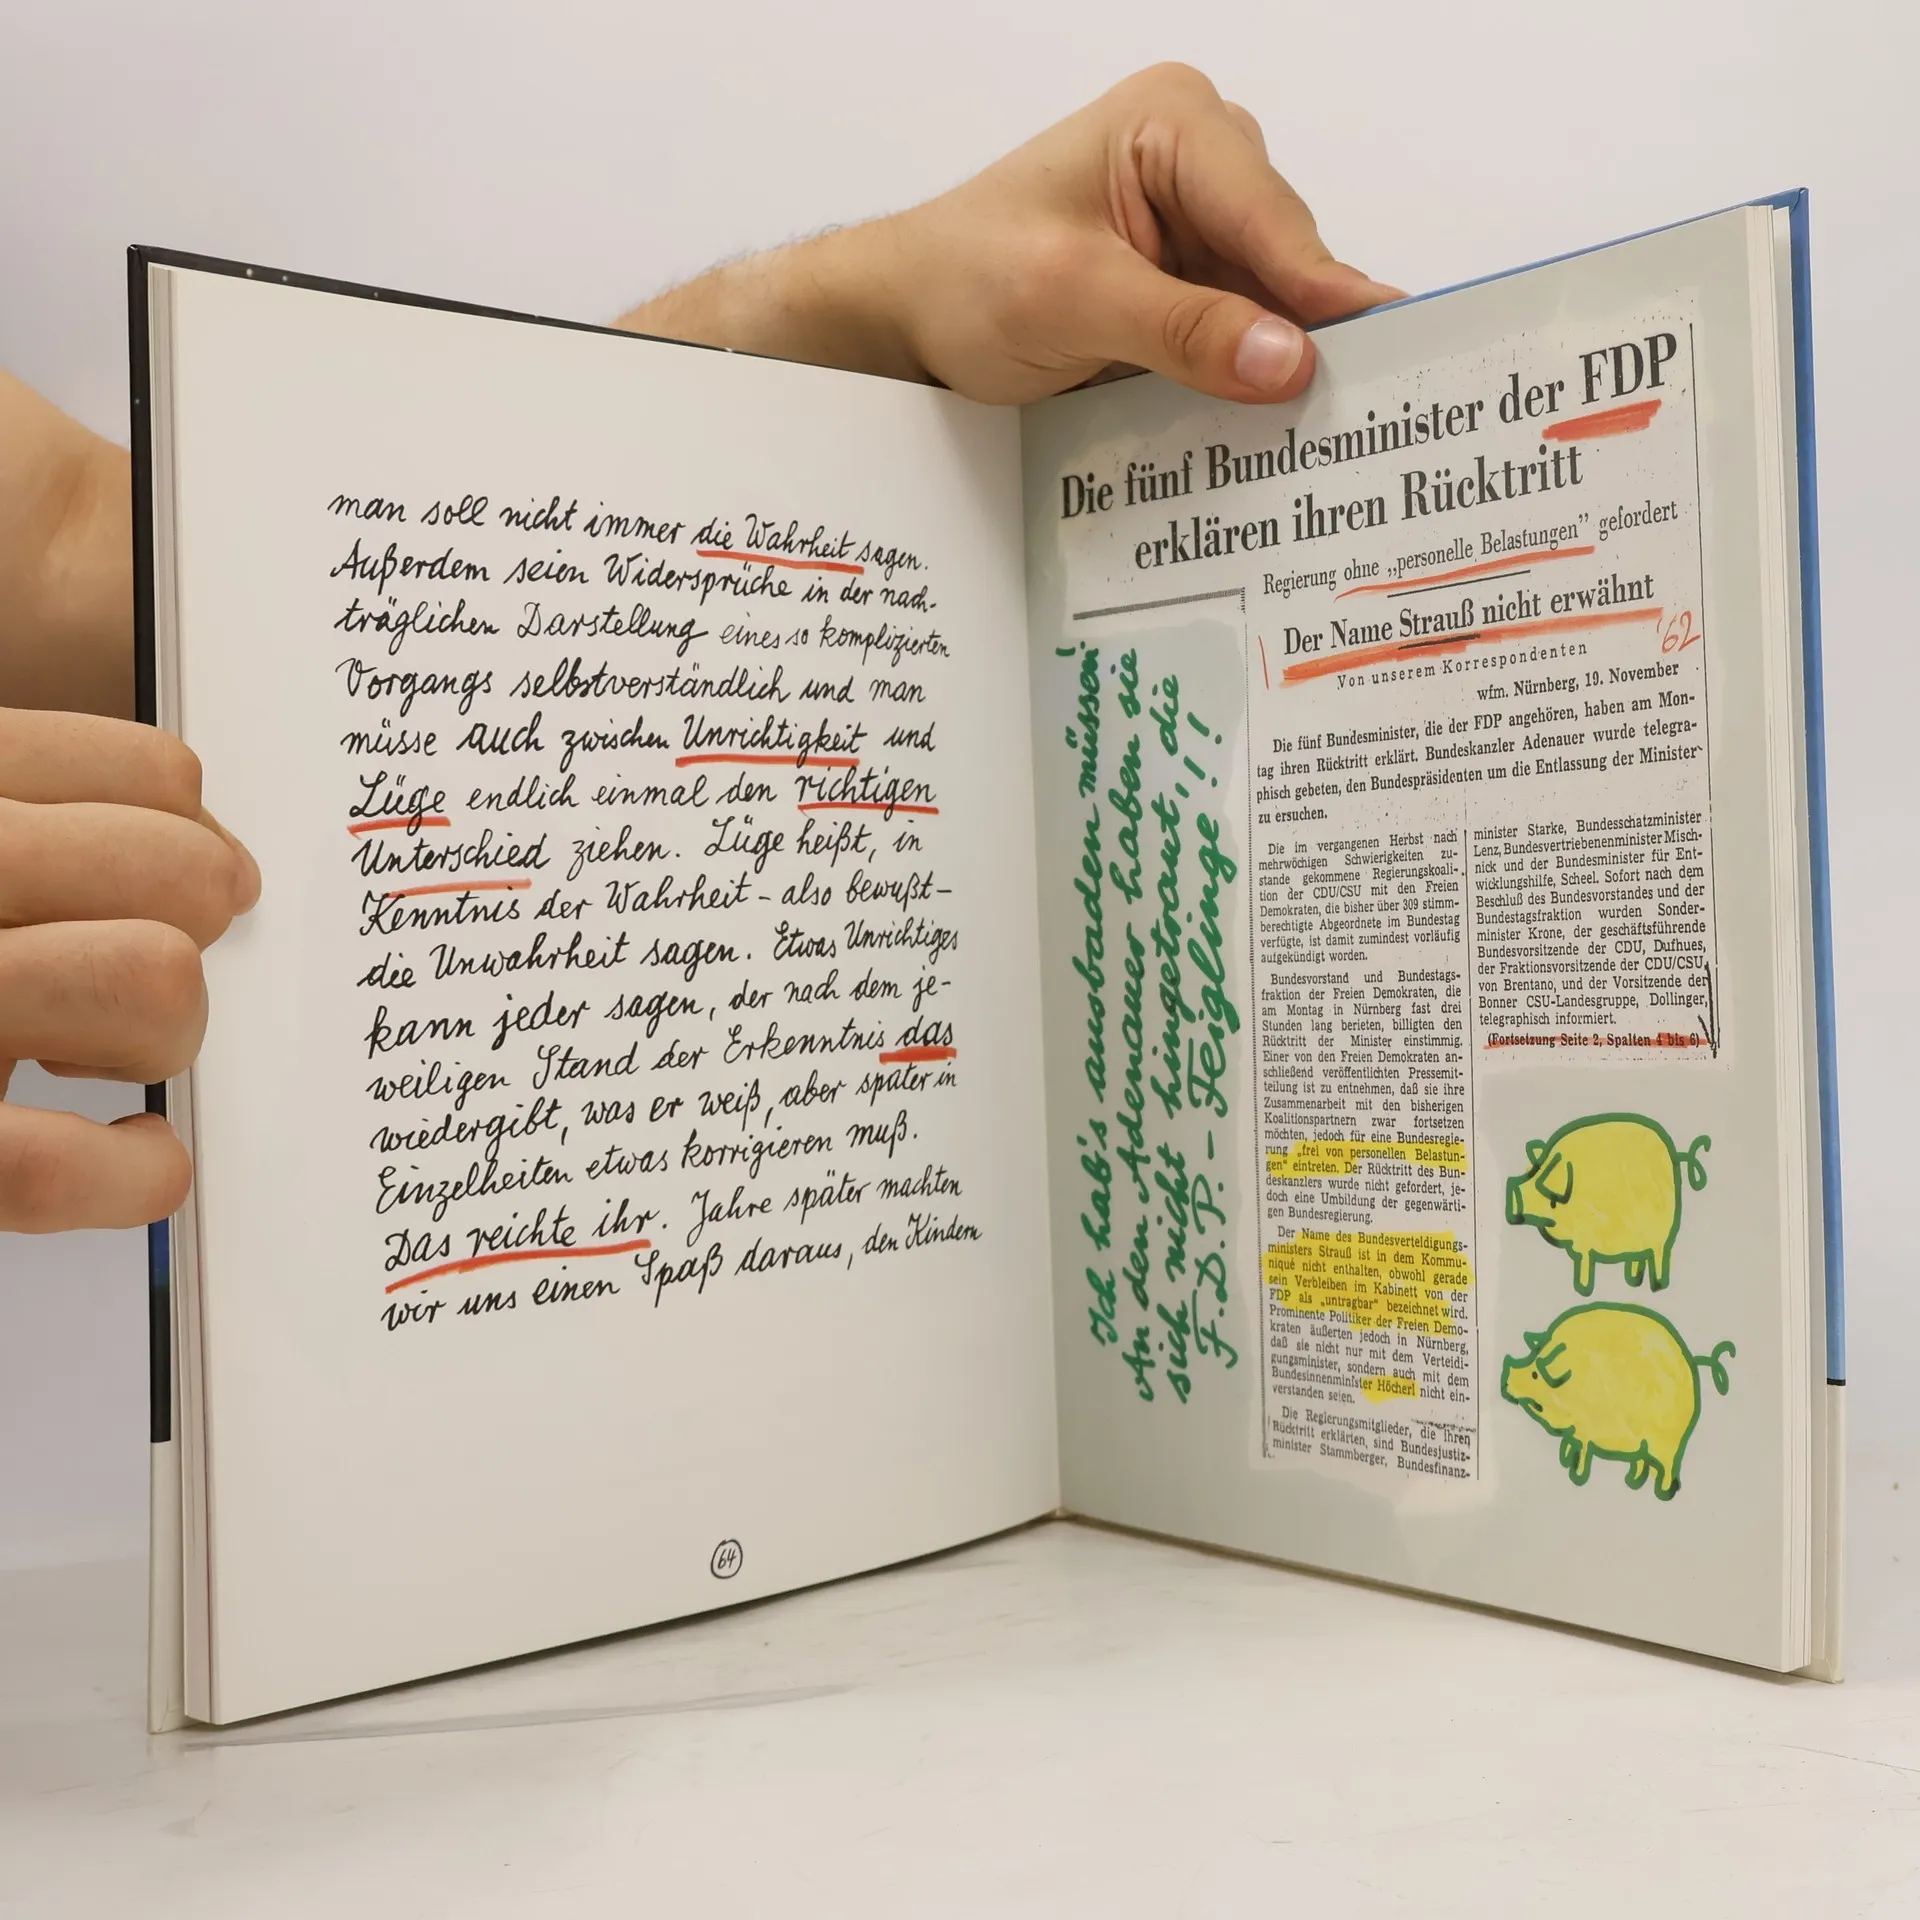 man soll nicht immer die Wahrheit sagen.
Außerdem seien Widersprüche in der nach-
träglichen Darstellung eines so komplizierten
Vorgangs selbstverständlich und man
müsse auch zwischen Unrichtigkeit und
Lüge endlich einmal den richtigen
Unterschied ziehen. Lüge heißt, in
Kenntnis der Wahrheit - also bewußt -
die Unwahrheit sagen. Etwas Unrichtiges
kann jeder sagen, der nach dem je-
weiligen Stand der Erkenntnis das
wiedergibt, was er weiß, aber später in
Einzelheiten etwas korrigieren muß.
Das reichte ihr. Jahre später machten
wir uns einen Spaß daraus, den Kindern
64
Die fünf Bundesminister der FDP
erklären ihren Rücktritt
Regierung ohne „personelle Belastungen” gefordert
Der Name Strauß nicht erwähnt
'62
Von unserem Korrespondenten
wfm. Nürnberg, 19. November
Die fünf Bundesminister, die der FDP angehören, haben am Mon-
tag ihren Rücktritt erklärt. Bundeskanzler Adenauer wurde telegra-
phisch gebeten, den Bundespräsidenten um die Entlassung der Minister
zu ersuchen.
Die im vergangenen Herbst nach
mehrwöchigen Schwierigkeiten zu-
stande gekommene Regierungskoali-
tion der CDU/CSU mit den Freien
Demokraten, die bisher über 309 stimm-
berechtigte Abgeordnete im Bundestag
verfügte, ist damit zumindest vorläufig
aufgekündigt worden.
Bundesvorstand und Bundestags-
fraktion der Freien Demokraten, die
am Montag in Nürnberg fast drei
Stunden lang berieten, billigten den
Rücktritt der Minister einstimmig.
Einer von den Freien Demokraten an-
schließend veröffentlichten Pressemit-
teilung ist zu entnehmen, daß sie ihre
Zusammenarbeit mit den bisherigen
Koalitionspartnern zwar fortsetzen
möchten, jedoch für eine Bundesregie-
rung „frei von personellen Belastun-
gen“ eintreten. Der Rücktritt des Bun-
deskanzlers wurde nicht gefordert, je-
doch eine Umbildung der gegenwärti-
gen Bundesregierung.
Der Name des Bundesverteidigungs-
ministers Strauß ist in dem Kommu-
niqué nicht enthalten, obwohl gerade
sein Verbleiben im Kabinett von der
FDP als „untragbar“ bezeichnet wird.
Prominente Politiker der Freien Demo-
kraten äußerten jedoch in Nürnberg,
daß sie nicht nur mit dem Verteidi-
gungsminister, sondern auch mit dem
Bundesinnenminister Höcherl nicht ein-
verstanden seien.
Die Regierungsmitglieder, die ihren
Rücktritt erklärten, sind Bundesjustiz-
minister Stammberger, Bundesfinanz-
minister Starke, Bundesschatzminister
Lenz, Bundesvertriebenenminister Misch-
nick und der Bundesminister für Ent-
wicklungshilfe, Scheel. Sofort nach dem
Beschluß des Bundesvorstandes und der
Bundestagsfraktion wurden Sonder-
minister Krone, der geschäftsführende
Bundesvorsitzende der CDU, Dufhues,
der Fraktionsvorsitzende der CDU/CSU,
von Brentano, und der Vorsitzende der
Bonner CSU-Landesgruppe, Dollinger,
telegraphisch informiert.
(Fortsetzung Seite 2, Spalten 4 bis 6)
Ich hab's ausbaden müssen!
An den Adenauer haben sie
sich nicht hingetraut, die
F.D.P. - Feiglinge!!